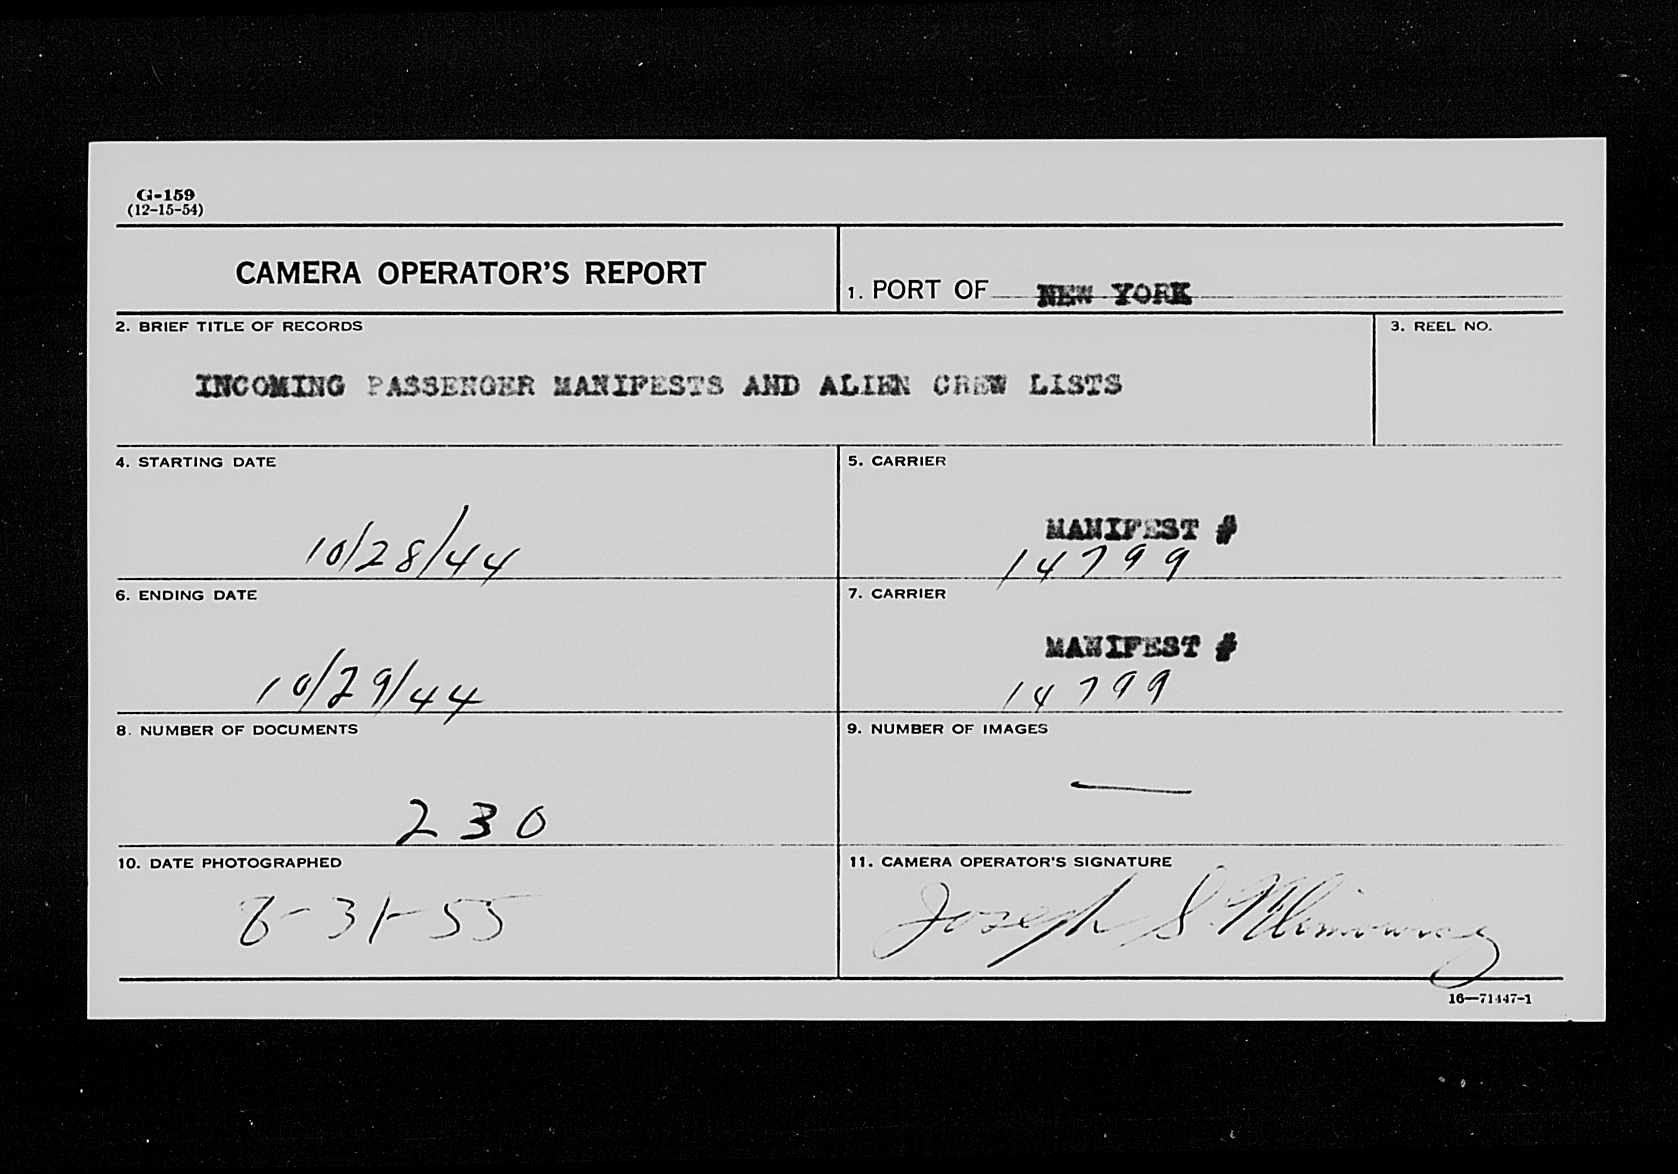 G-159
(12-15-54)
CAMERA OPERATOR'S REPORT
1. PORT OF NEW YORK
2. BRIEF TITLE OF RECORDS
3. REEL NO.
INCOMING PASSENGER MANIFESTS AND ALIEN CREW LISTS
4. STARTING DATE
10/28/44
5. CARRIER
MANIFEST #
14799
6. ENDING DATE
10/29/44
7. CARRIER
MANIFEST #
14799
8. NUMBER OF DOCUMENTS
230
9. NUMBER OF IMAGES
—
10. DATE PHOTOGRAPHED
8-31-55
11. CAMERA OPERATOR'S SIGNATURE
Joseph S.
16—71447-1